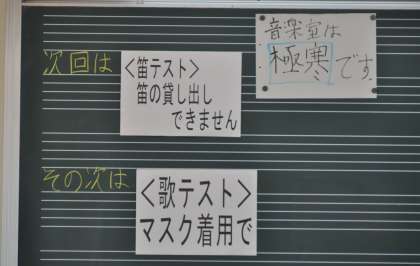 音楽室は
極寒です。
次回は
<笛テスト>
笛の貸し出し
できません
その次は
<歌テスト>
マスク着用で